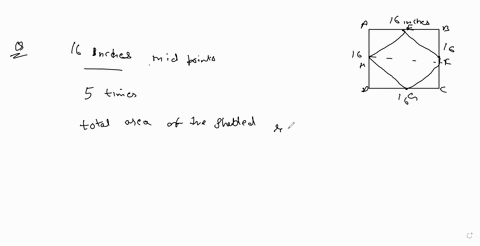 Q 16 Inches mid points
5 times
total area of the shaded
A 16 inches B
E
16 16
H F
D 16 G C